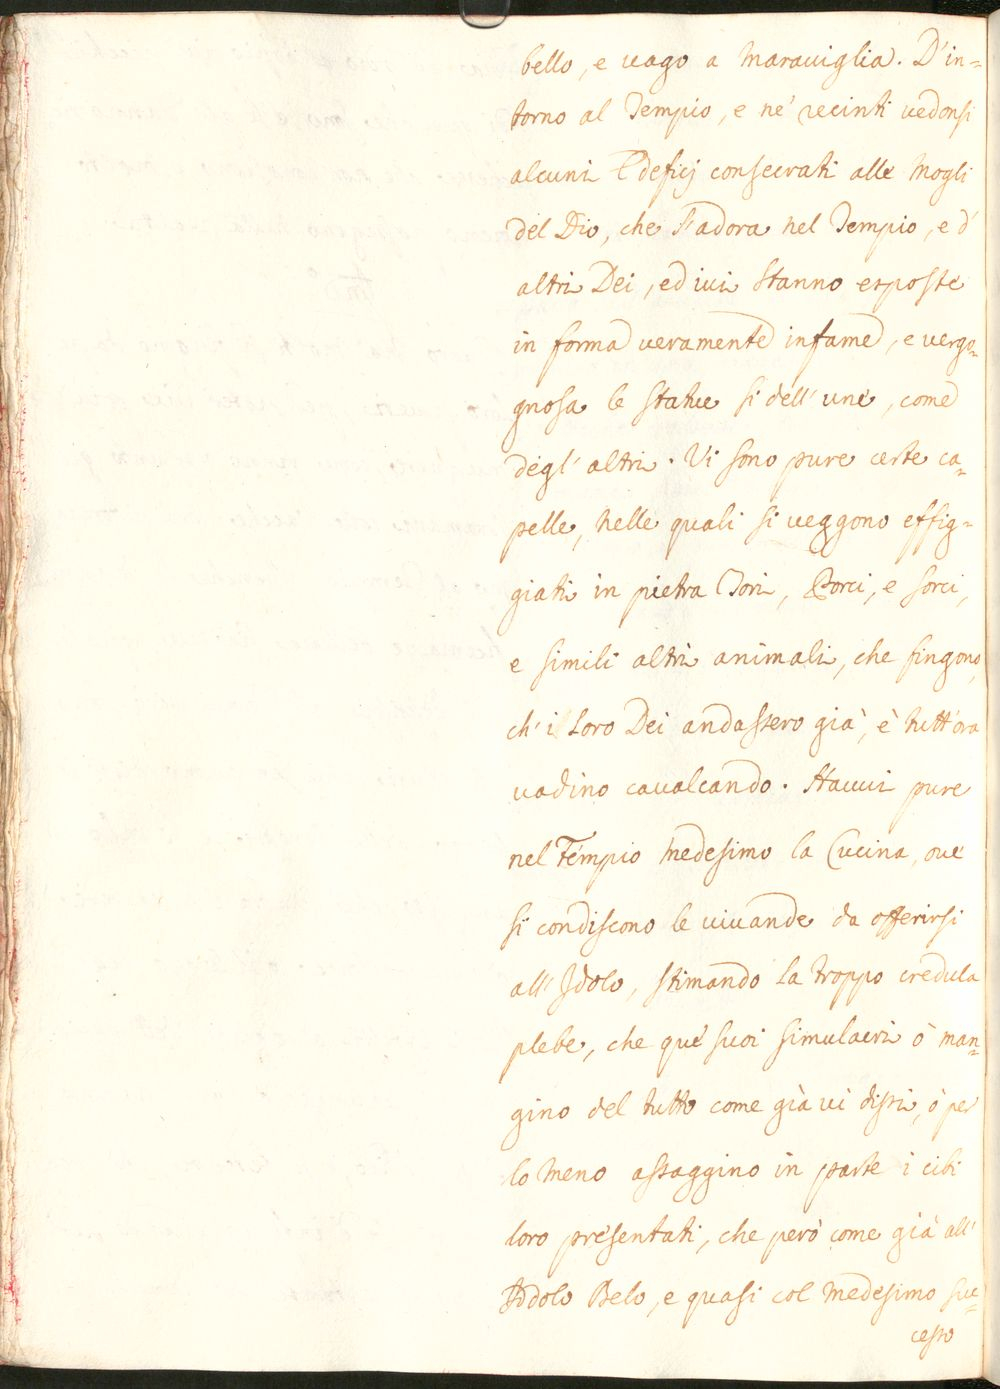 bello, e vago a maraviglia. D'in=
torno al Tempio, e ne' recinti vedonsi
alcuni Edeficj consecrati alle Mogli
del Dio, che s'adora nel Tempio, e d'
altri Dei, ed ivi stanno esposte
in forma veramente infame, e vergo=
gnosa le statue sì dell'une, come
degl'altri. Vi sono pure certe ca=
pelle, nelle quali si veggono effig=
giati in pietra Tori, Porci, e sorci,
e simili altri animali, che fingono,
ch'i loro Dei andassero già, è tutt'ora
vadino cavalcando. Havvi pure
nel Tempio medesimo la Cucina, ove
si condiscono le vivande da offerirsi
all'Idolo, stimando la troppo credula
plebe, che que' suoi simulacri ò man=
gino del tutto come già vi dissi, ò per
lo meno assaggino in parte i cibi
loro presentati, che però come già all'
Idolo Belo, e quasi col medesimo suc=
cesso